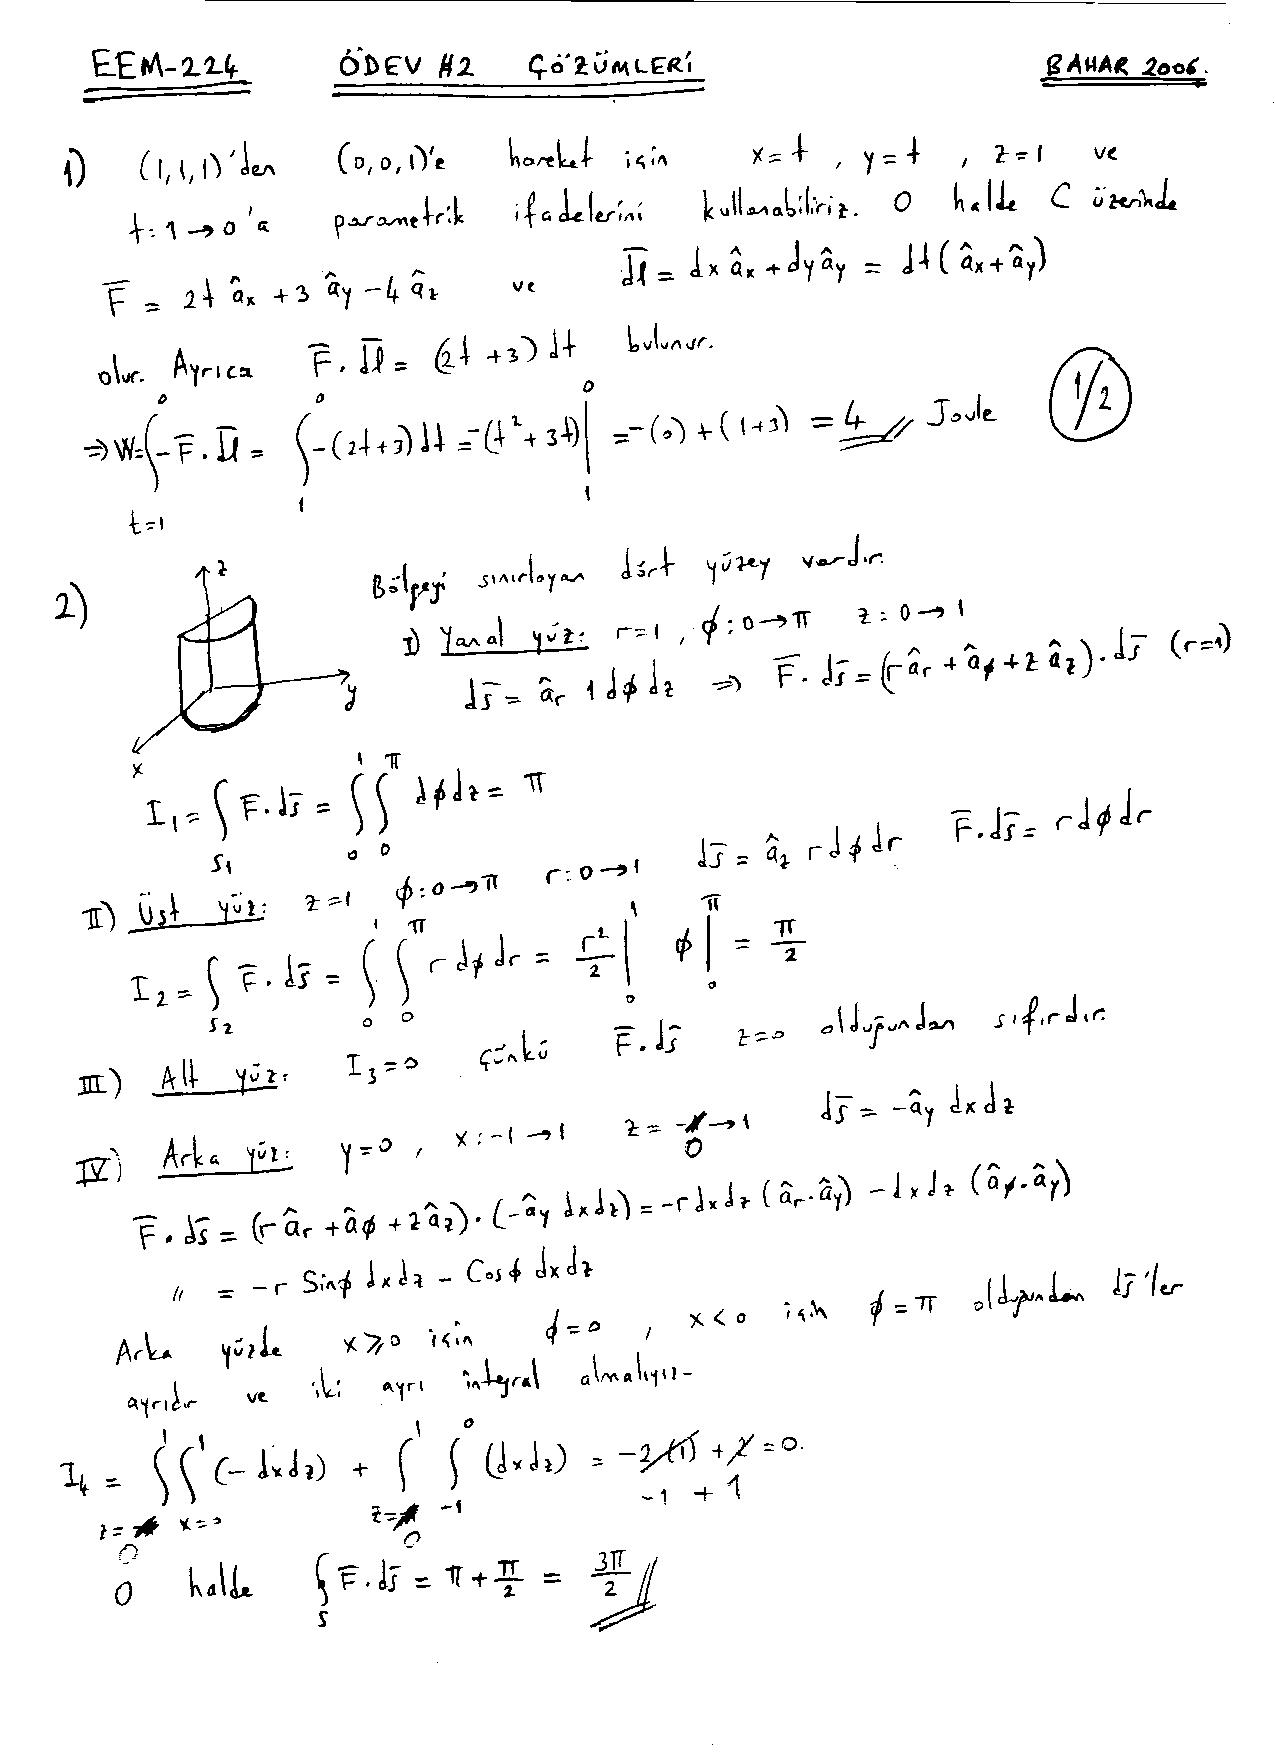 EEM-224 ÖDEV #2 ÇÖZÜMLERİ BAHAR 2006.
1) (1,1,1)'den (0,0,1)'e hareket için x=t , y=t , z=1 ve
t:1→0'a parametrik ifadelerini kullanabiliriz. O halde C üzerinde
F̄ = 2t âx + 3 ây - 4 âz ve d̄l = dx âx + dy ây = dt(âx + ây)
olur. Ayrıca F̄. d̄l = (2t+3) dt bulunur.
⇒ W = ∫_{t=1}^{0} -F̄. d̄l = ∫_{1}^{0} -(2t+3) dt = -(t² + 3t)|_{1}^{0} = -(0) + (1+3) = 4 Joule
1/2
2) z y x
Bölgeyi sınırlayan dört yüzey vardır.
I) Yanal yüz: r=1 , φ:0→π z:0→1
ds̄ = âr 1 dφ dz ⇒ F̄. ds̄ = (r âr + âφ + z âz). ds̄ (r=1)
I₁ = ∫_{S1} F̄. ds̄ = ∫_{0}^{1} ∫_{0}^{π} dφ dz = π
II) Üst yüz: z=1 φ:0→π r:0→1 ds̄ = âz r dφ dr F̄. ds̄ = r dφ dr
I₂ = ∫_{S2} F̄. ds̄ = ∫_{0}^{1} ∫_{0}^{π} r dφ dr = r²/2 |_{0}^{1} φ |_{0}^{π} = π/2
III) Alt yüz: I₃=0 çünkü F̄. ds̄ z=0 olduğundan sıfırdır.
IV) Arka yüz: y=0 , x:-1→1 z=0→1 ds̄ = -ây dx dz
F̄. ds̄ = (r âr + âφ + z âz). (-ây dx dz) = -r dx dz (âr. ây) - dx dz (âφ. ây)
" = -r Sinφ dx dz - Cosφ dx dz
Arka yüzde x⩾0 için φ=0 , x<0 için φ=π olduğundan ds̄'ler
ayrıdır ve iki ayrı integral almalıyız.
I₄ = ∫_{z=0}^{1} ∫_{x=0}^{1} (-dx dz) + ∫_{z=0}^{1} ∫_{-1}^{0} (dx dz) = -2(1) + 2 = 0.
-1 + 1
O halde ∮_{S} F̄. ds̄ = π + π/2 = 3π/2